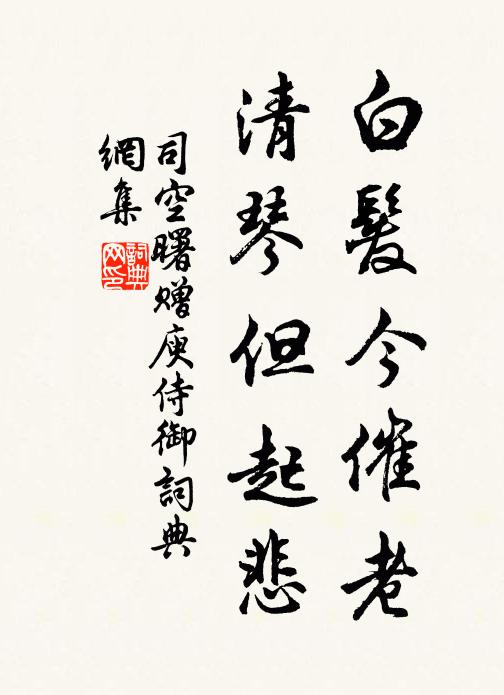 白髮今催老
清琴但起悲
司空曙贈庾侍御詞典
網集
詞典網印